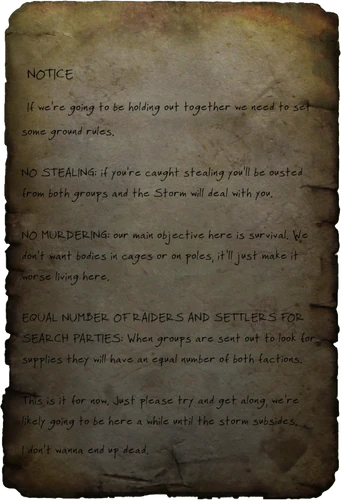 NOTICE
If we're going to be holding out together we need to set
some ground rules.
NO STEALING: if you're caught stealing you'll be ousted
from both groups and the Storm will deal with you.
NO MURDERING: our main objective here is survival. We
don't want bodies in cages or on poles, it'll just make it
worse living here.
EQUAL NUMBER OF RAIDERS AND SETTLERS FOR
SEARCH PARTIES: When groups are sent out to look for
supplies they will have an equal number of both factions.
This is it for now. Just please try and get along, we're
likely going to be here a while until the storm subsides.
I don't wanna end up dead.